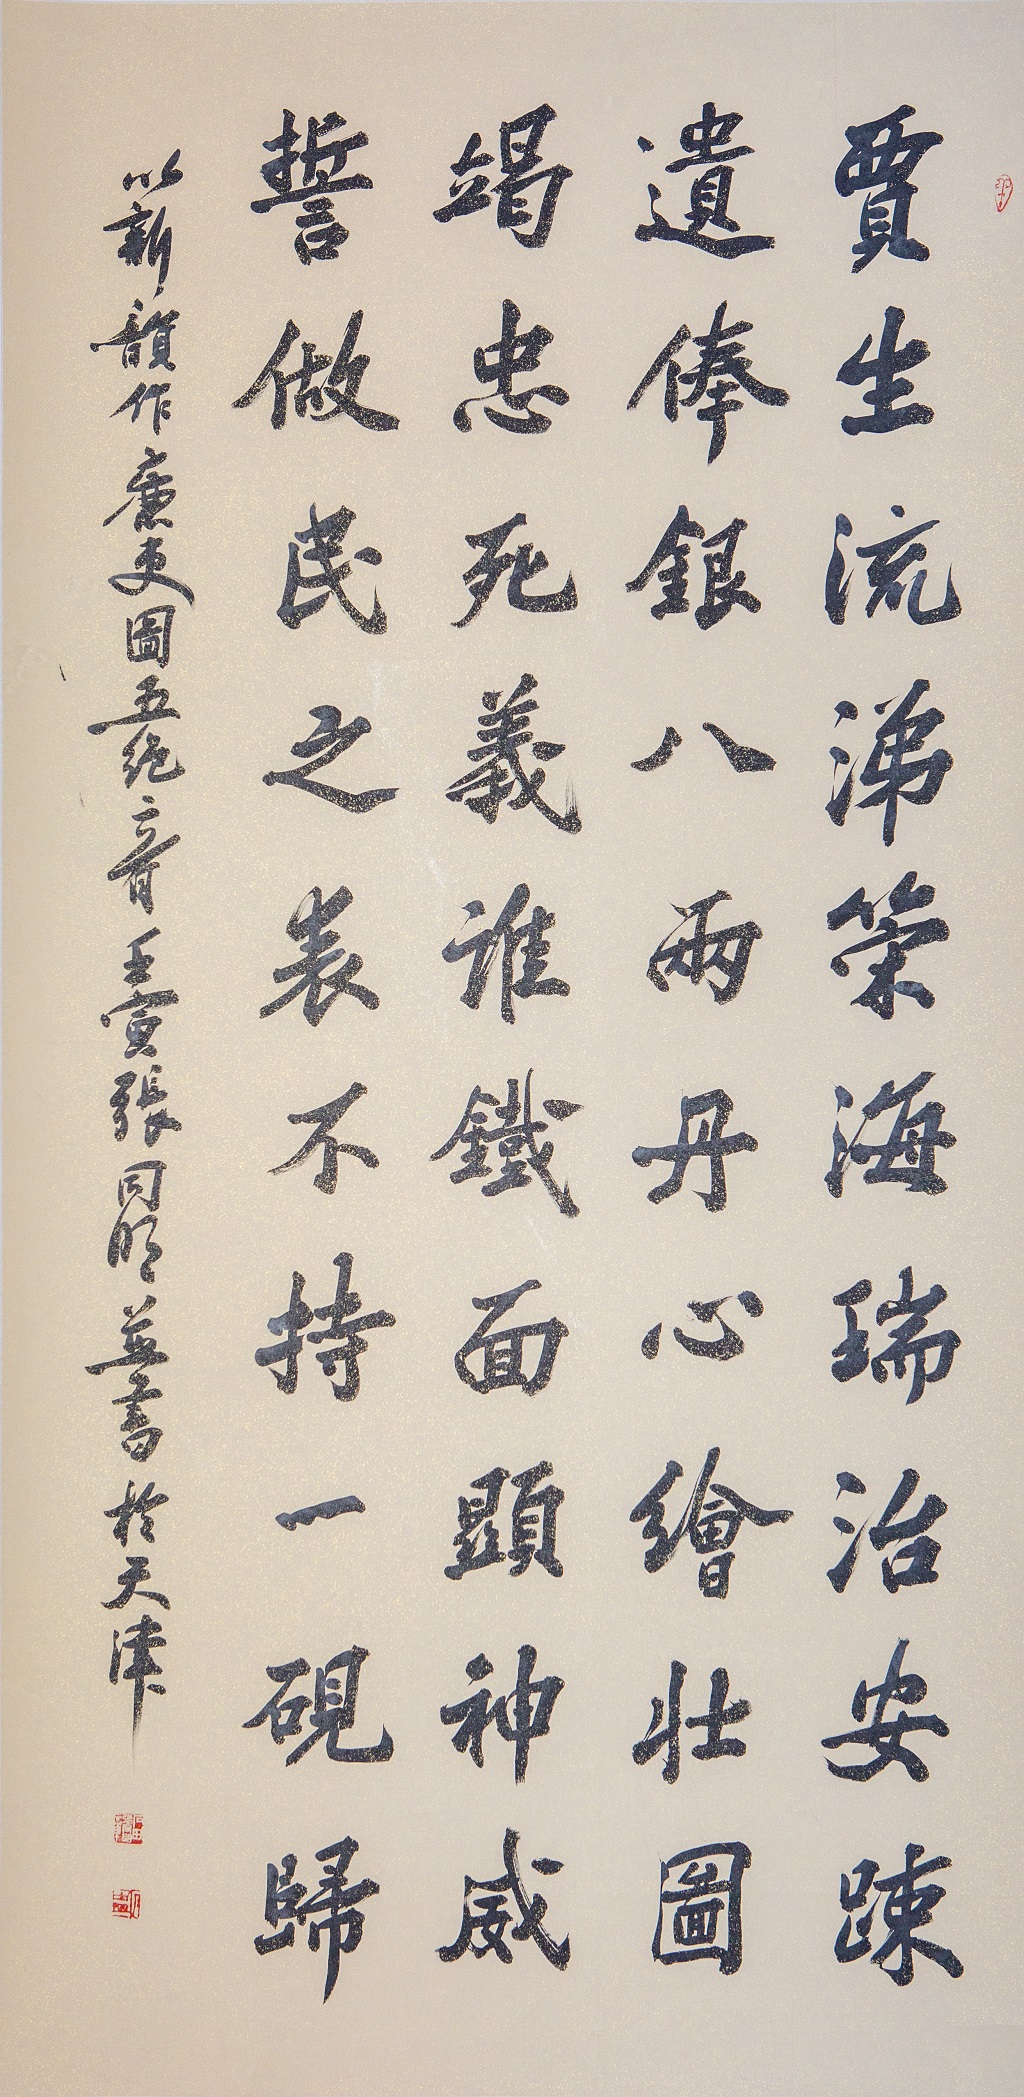 賈生流涕策海瑞治安疎
遺俸銀八兩丹心繪壯圖
竭忠死義誰鐵面顯神威
誓做民之表不持一硯歸
以新韻作廉吏圖五絕二首壬寅張同明並書於天津